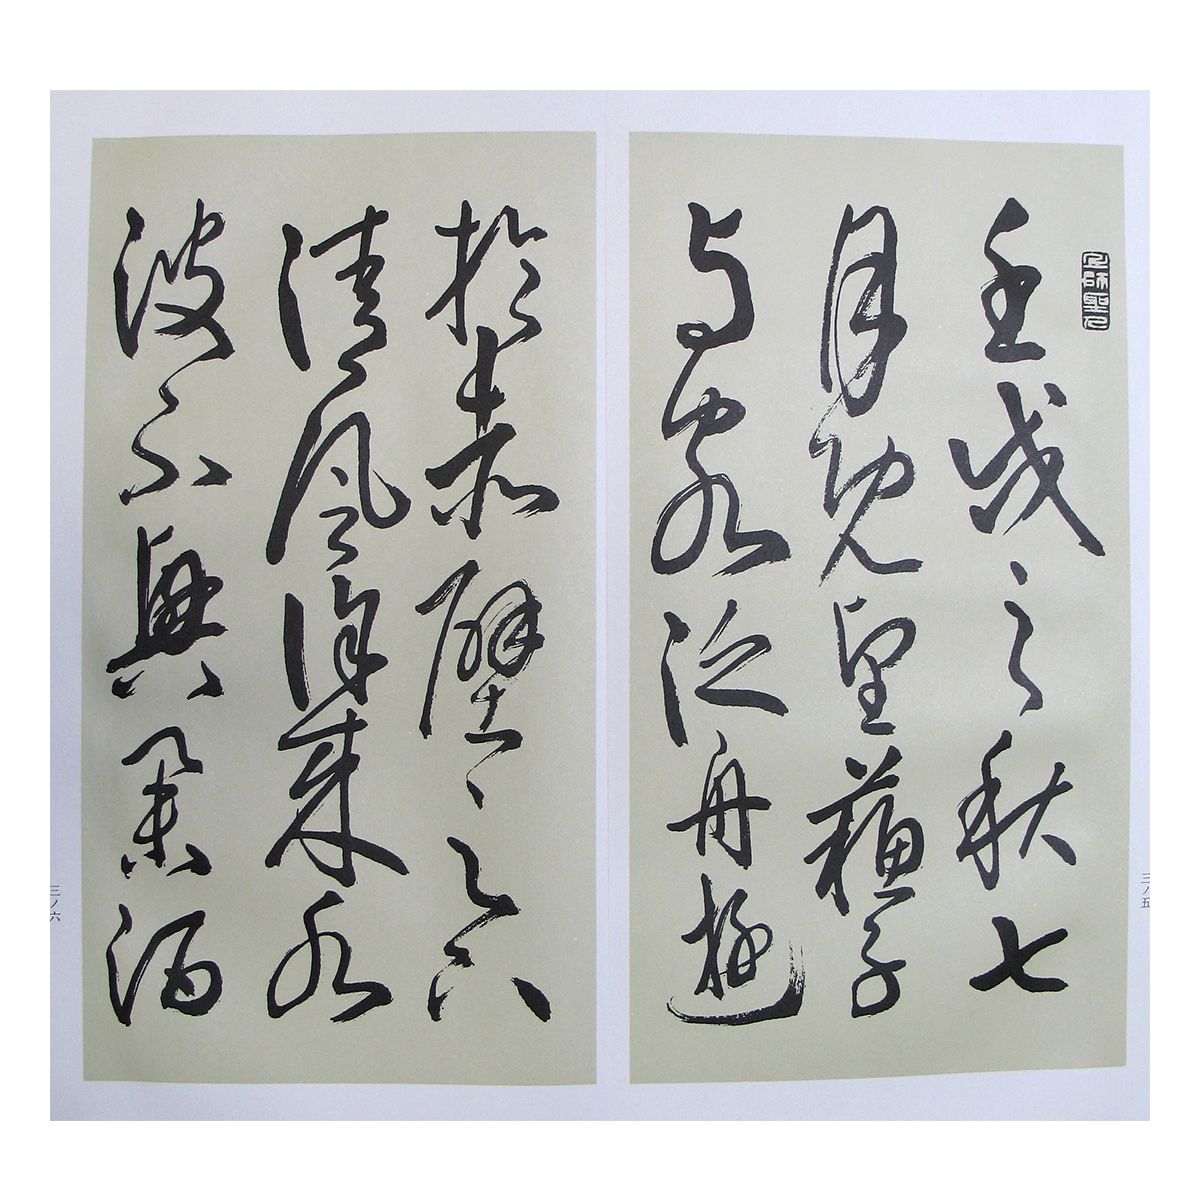 壬戌之秋七
月既望蘇子
与客泛舟遊
於赤壁之下
清風徐來水
波不興舉酒
三ノ五
三ノ六